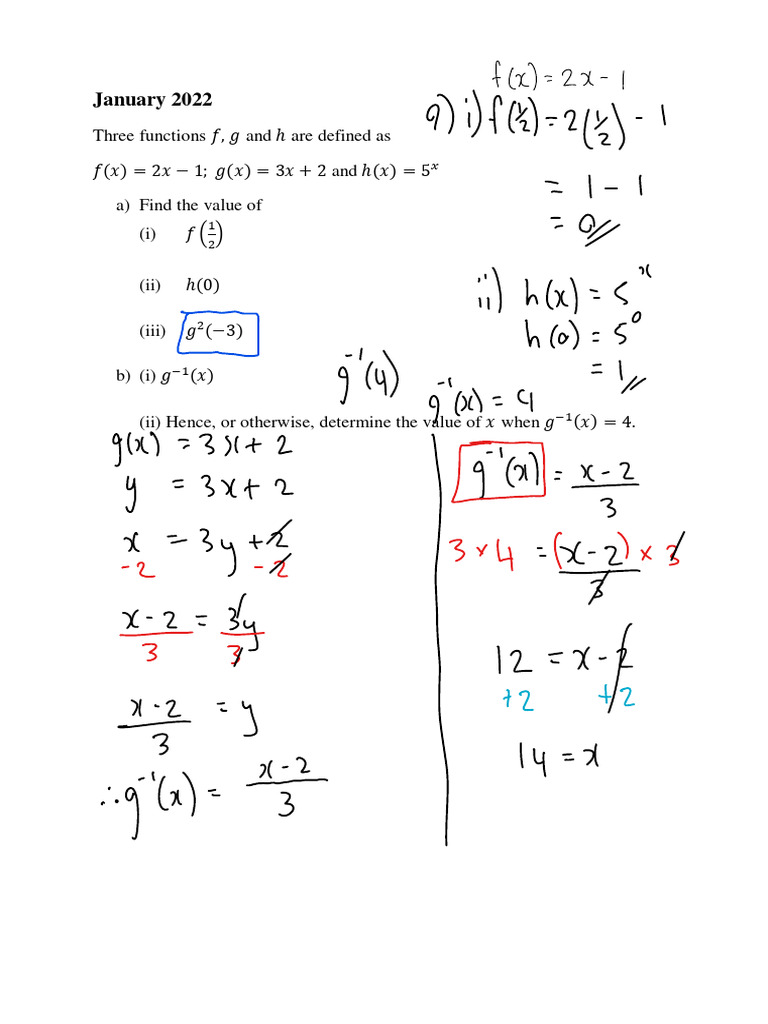 January 2022
Three functions f, g and h are defined as
f(x) = 2x − 1; g(x) = 3x + 2 and h(x) = 5^x
a) Find the value of
(i) f(1/2)
(ii) h(0)
(iii) g²(−3)
b) (i) g⁻¹(x)
(ii) Hence, or otherwise, determine the value of x when g⁻¹(x) = 4.
f(x) = 2x - 1
a) i) f(1/2) = 2(1/2) - 1
= 1 - 1
= 0
ii) h(x) = 5^x
h(0) = 5^0
= 1
g⁻¹(4)
g⁻¹(x) = 4
g(x) = 3x + 2
y = 3x + 2
x = 3y + 2
-2 -2
x - 2 = 3y
3 3
x - 2 = y
3
∴ g⁻¹(x) = x - 2
3
g⁻¹(x) = x - 2
3
3 × 4 = (x - 2) × 3
3
12 = x - 2
+2 +2
14 = x